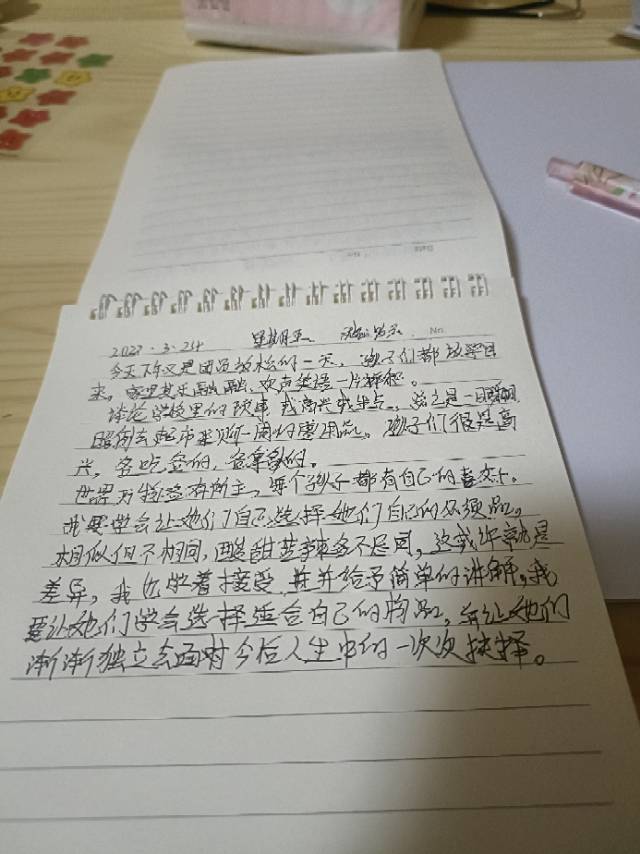 2023.3.24 星期五 No.
今天下午又是团员放松的一天，孩子们都放学回
来，家里其乐融融，欢声笑语一片祥和。
谈论学校里的琐事，或高兴或生气，总之是一日
照例去超市采购一周的零用品。孩子们很是高
兴，各吃各的，各拿各的。
世界万物各有所主，每个孩子都有自己的喜好。
我要学会让她们自己选择她们自己的必须品。
相似但不相同，酸甜苦辣各不尽同，这或许就是
差异，我也学着接受，并给予简单的讲解，我
要让她们学会选择适合自己的物品，并让她们
渐渐独立去面对今后人生中的一次次抉择。